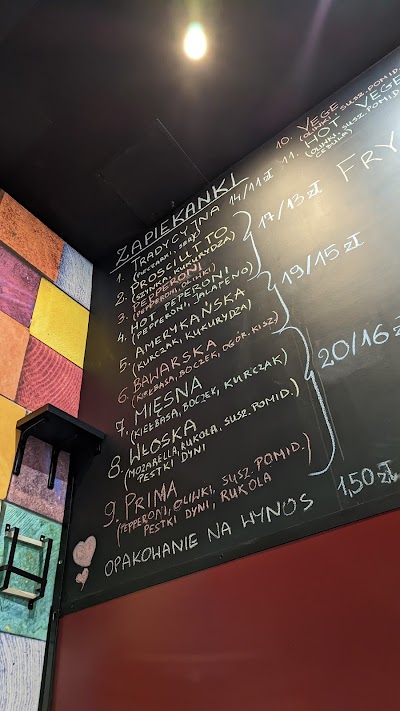 ZAPIEKANKI
1. TRADYCYJNA 14/11 zł
(PIECZARKI, SER)
2. PROSCIUTTO
(SZYNKA, KUKURYDZA)
3. PEPPERONI
(PEPPERONI, OLIWKI)
17/13 zł
4. HOT PEPERONI
(PEPPERONI, JALAPENO)
5. AMERYKAŃSKA
(KURCZAK, KUKURYDZA)
19/15 zł
6. BAWARSKA
(KIEŁBASA, BOCZEK, OGÓR. KISZ)
7. MIĘSNA
(KIEŁBASA, BOCZEK, KURCZAK)
20/16 zł
8. WŁOSKA
(MOZARELLA, RUKOLA, SUSZ. POMID.)
PESTKI DYNI
9. PRIMA
(PEPPERONI, OLIWKI, SUSZ. POMID.)
PESTKI DYNI, RUKOLA
OPAKOWANIE NA WYNOS 1,50 zł
10. VEGE
(OLIWKI, SUSZ. POMID.
11. HOT VEGE
(OLIWKI, SUSZ. POMID.
CEBULA)
FRY